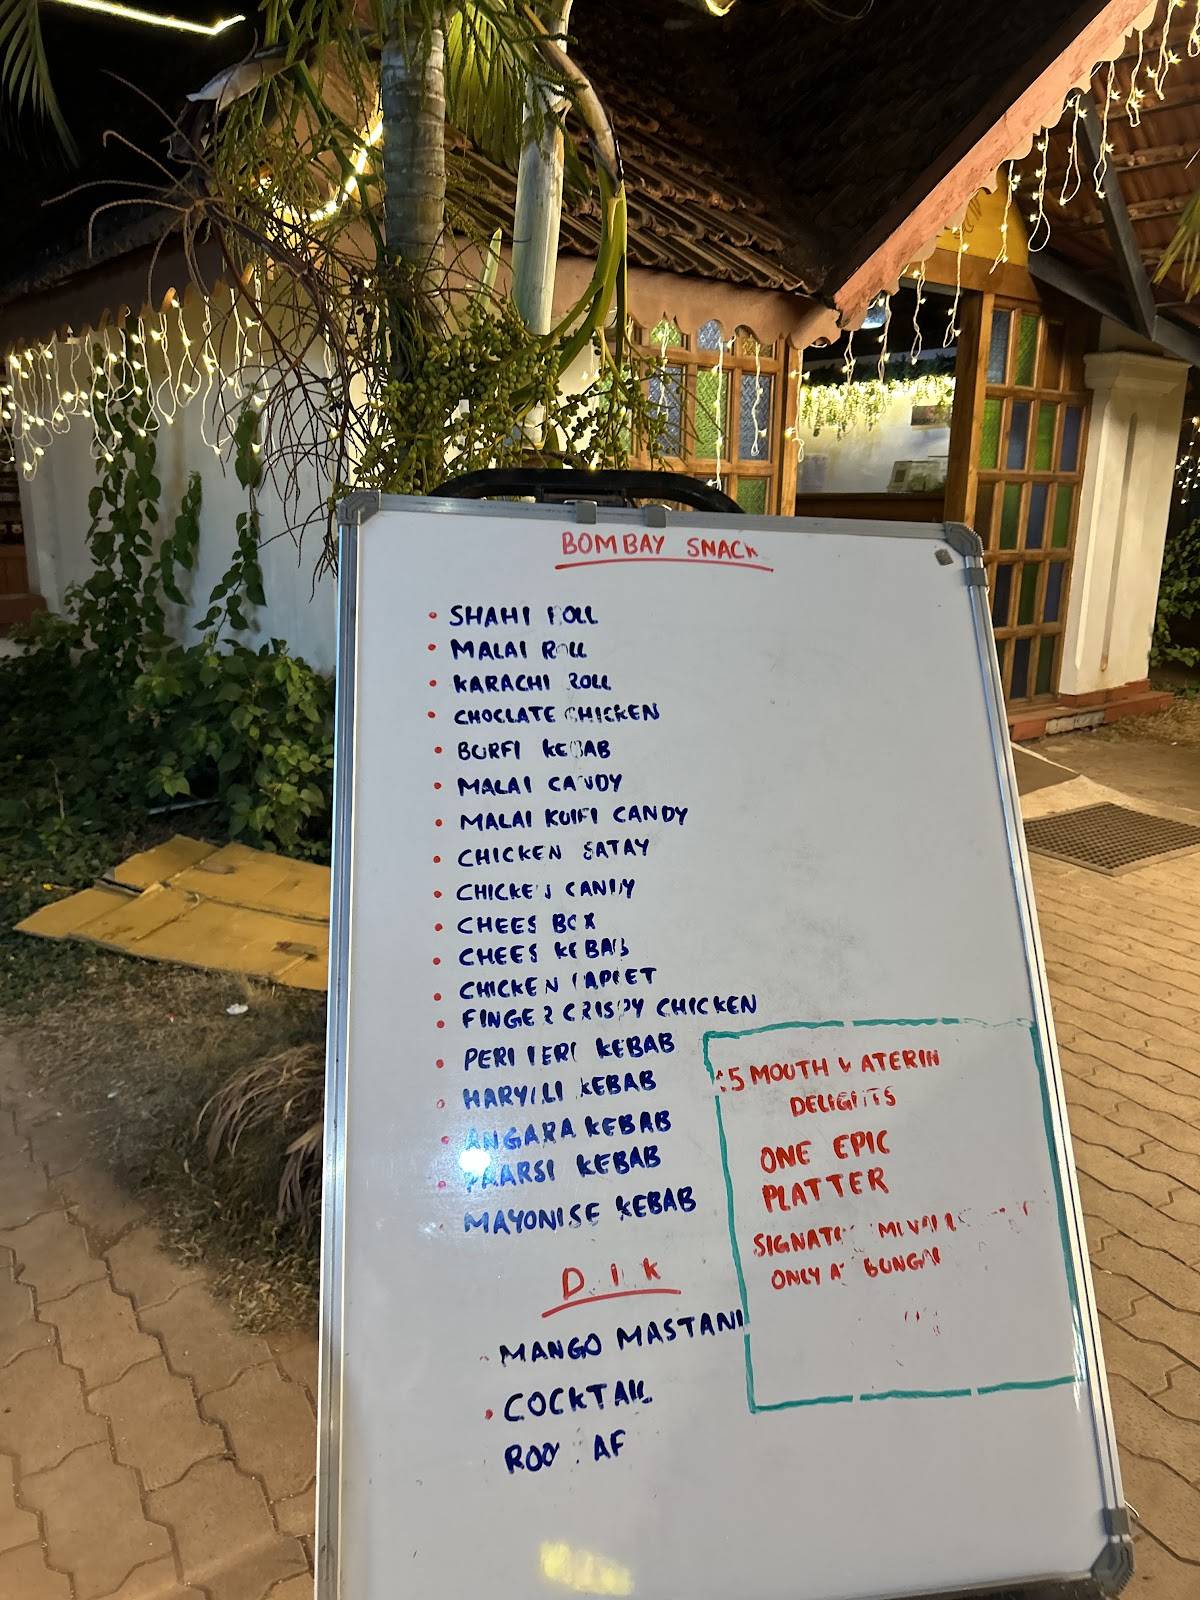 BOMBAY SNACK
SHAHI ROLL
MALAI ROLL
KARACHI ROLL
CHOCLATE CHICKEN
BURFI KEBAB
MALAI CANDY
MALAI KULFI CANDY
CHICKEN SATAY
CHICKEN CANDY
CHEES BOX
CHEES KEBAB
CHICKEN
FINGER CRISPY CHICKEN
PERI PERI KEBAB
HARYALI KEBAB
ANGARA KEBAB
PAARSI KEBAB
MAYONISE KEBAB
MANGO MASTANI
COCKTAIL
ROOH AF
15 MOUTH WATERIN
DELIGHTS
ONE EPIC
PLATTER
ONLY AT